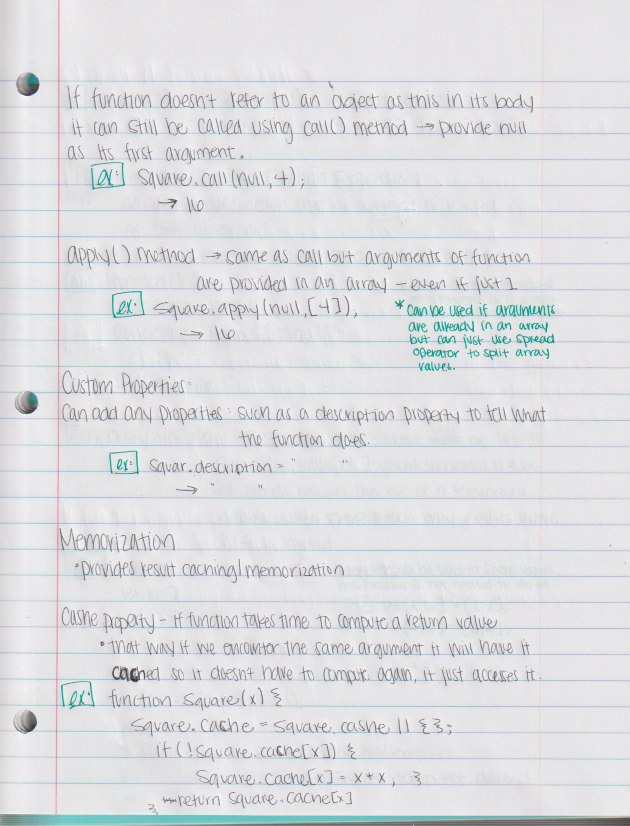 If function doesn't refer to an object as this in its body
it can still be called using call() method → provide null
as its first argument.
ex: Square.call(null,4);
→ 16
apply() method → same as call but arguments of function
are provided in an array – even if just 1
ex: Square.apply(null,[4]),
→ 16
* Can be used if arguments
are already in an array
but can just use spread
operator to split array
values.
Custom Properties:
Can add any properties: such as a description property to tell what
the function does.
ex: Squar.description = "          "
→ "          "
Memorization
• provides result caching/memorization
Cashe property – if function takes time to compute a return value
• that way if we encounter the same argument it will have it
cached so it doesn't have to compute again, it just accesses it.
ex: function Square(x) {
Square.cashe = Square.cashe || {};
if (!Square.cache[x]) {
Square.cache[x] = x*x; }
return Square.cache[x]
}